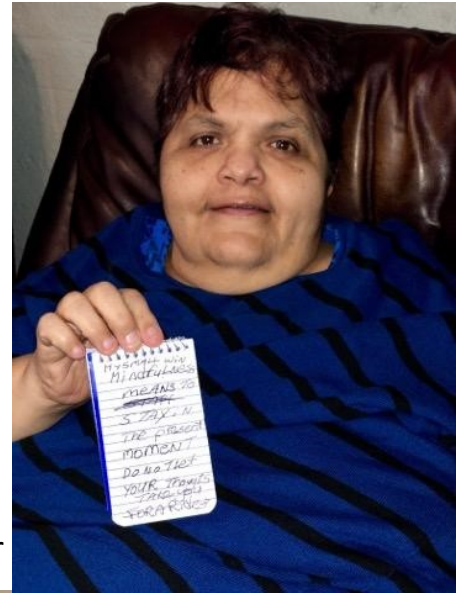 WIN
Mindfulness
MEANS TO
STAY iN
THE PRESENT
MOMENT
DO NOT let
YOUR
TAKE YOU
FOR A RIDE